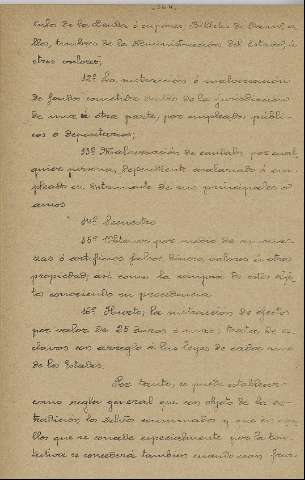 tulo de la deuda ó cupones, Billetes de Banco, se
llos, timbres de la Administracion del Estado, ú
otros valores;
12º La sustraccion ó malversacion
de fondos cometida dentro de la jurisdiccion
de una ú otra parte, por empleados públi
cos ó depositarios;
13º Malversacion de caudales por cual
quier persona, dependiente asalariado ó em
pleado en detrimento de sus principales ó
amos
14º Secuestro
15º Obtener por medio de amena
zas ó artificios falsos dinero, valores ú otra
propiedad; así como la compra de estos obje
tos conociendo su procedencia
16º Hurto; la sustraccion de efectos
por valor de 25 duros ó mas; trata de es
clavos con arreglo á las leyes de cada uno
de los Estados.
Por tanto, se puede establecer
como regla general que son objeto de la es
tradicion, los delitos enumerados y que en
llos que se concede especialmente por la ten
tativa se concederá tambien cuando sean frus